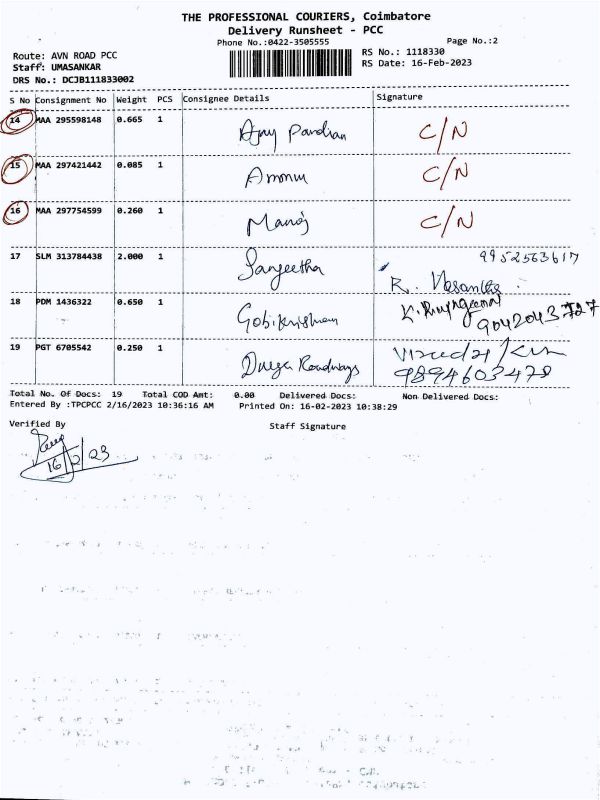 THE PROFESSIONAL COURIERS, Coimbatore
Delivery Runsheet - PCC
Phone No.:0422-3505555
Page No.:2
Route: AVN ROAD PCC
RS No.: 1118330
Staff: UMASANKAR
RS Date: 16-Feb-2023
DRS No.: DCJB111833002
S No Consignment No Weight PCS Consignee Details Signature
14 MAA 295598148 0.665 1 Ajay Pandian C/N
15 MAA 297421442 0.085 1 C/N
16 MAA 297754599 0.260 1 Manoj C/N
17 SLM 313784438 2.000 1 Sangeetha 9952563617
R. Vasantha
18 PDM 1436322 0.650 1 Gobikrishnan K.
9042043727
19 PGT 6705542 0.250 1 Durga Roadways
9894603478
Total No. Of Docs: 19 Total COD Amt: 0.00 Delivered Docs: Non Delivered Docs:
Entered By :TPCPCC 2/16/2023 10:36:16 AM Printed On: 16-02-2023 10:38:29
Verified By
Staff Signature
16/2/23